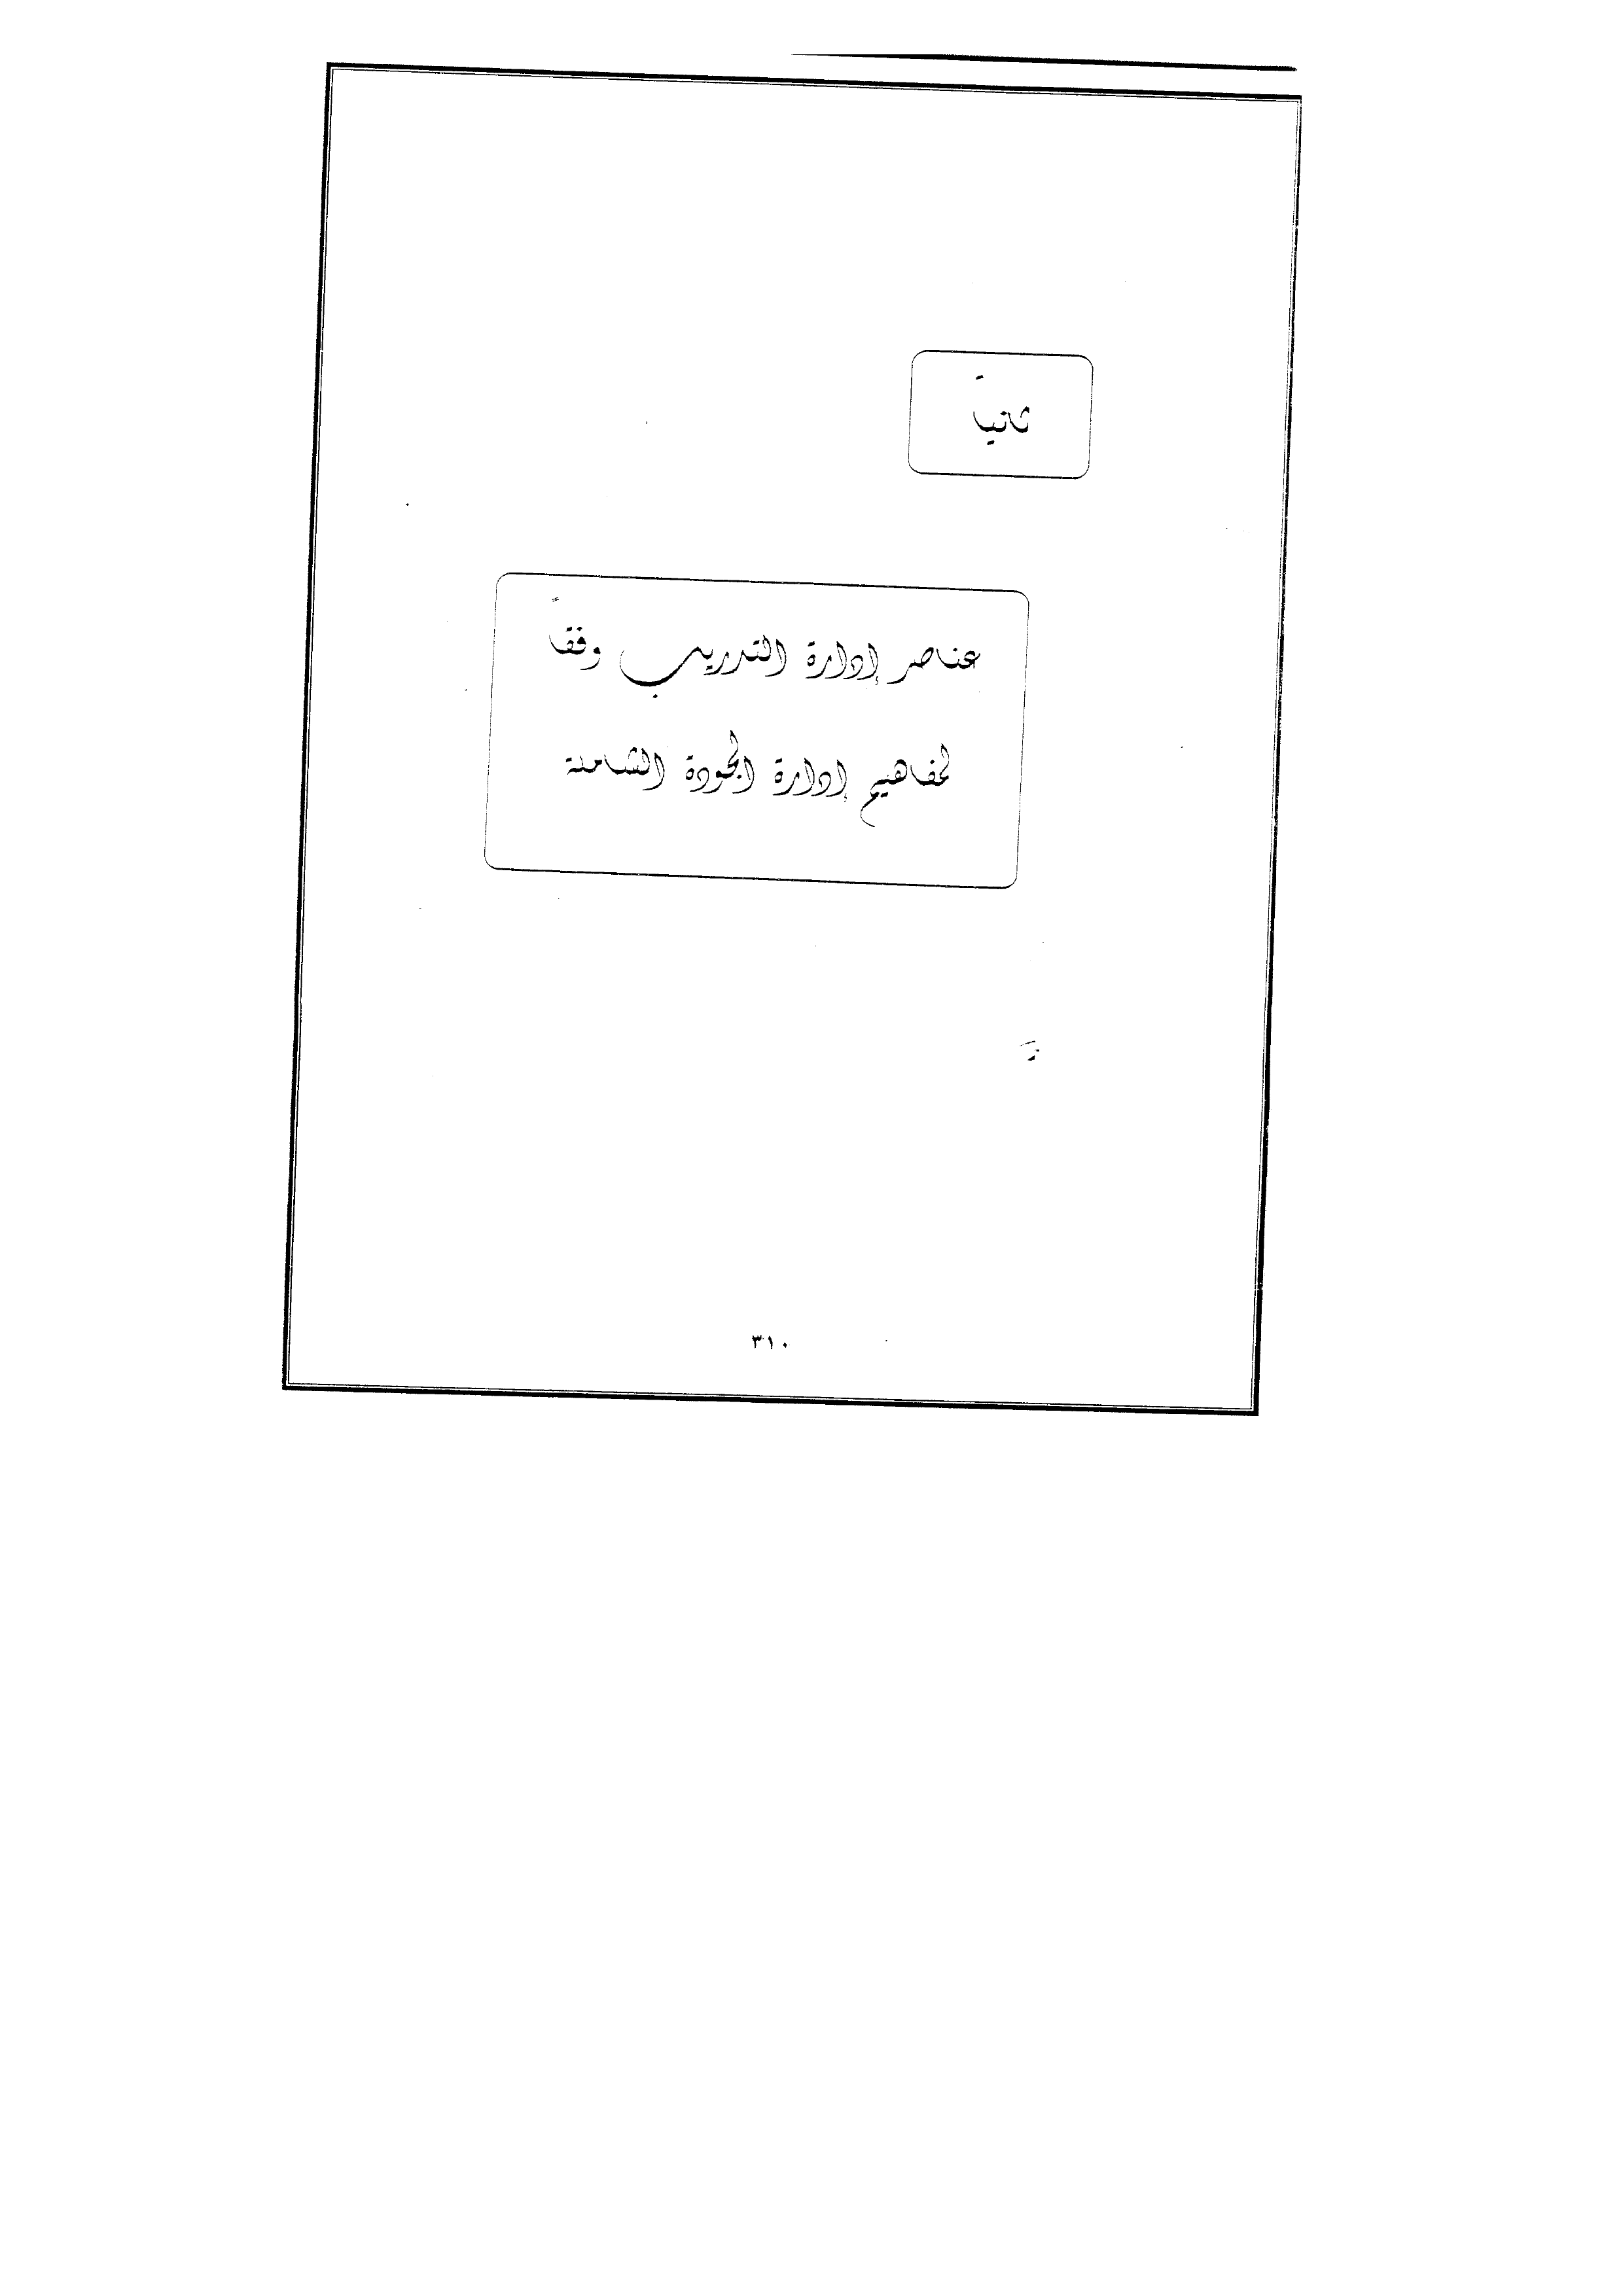 ثانياً
عناصر إدارة التدريب وفقاً
لمفاهيم إدارة الجودة الشاملة
٣١٠